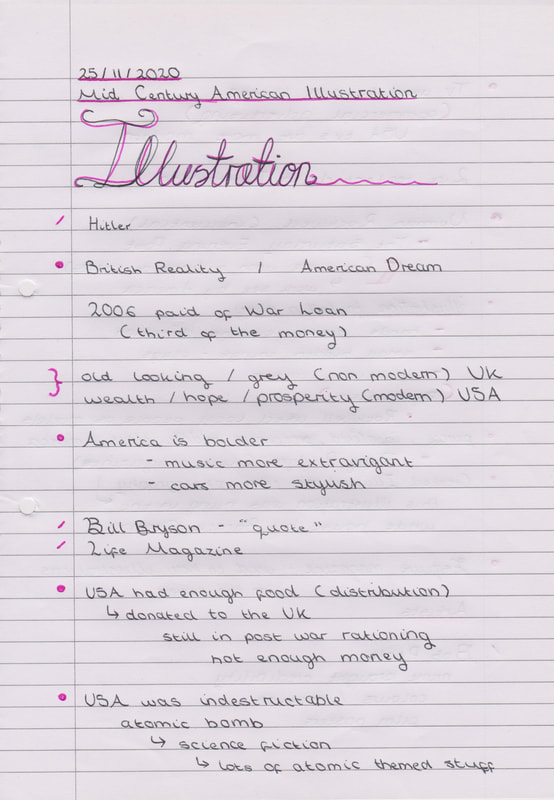 25/11/2020
Mid Century American Illustration
Illustration
Hitler
British Reality / American Dream
2006 paid of War Loan
(third of the money)
old looking / grey (non modern) UK
wealth / hope / prosperity (modern) USA
America is bolder
- music more extravigant
- cars more stylish
Bill Bryson - "quote"
Life Magazine
USA had enough food (distribution)
↳ donated to the UK
still in post war rationing
not enough money
USA was indestructable
atomic bomb
↳ science fiction
↳ lots of atomic themed stuff